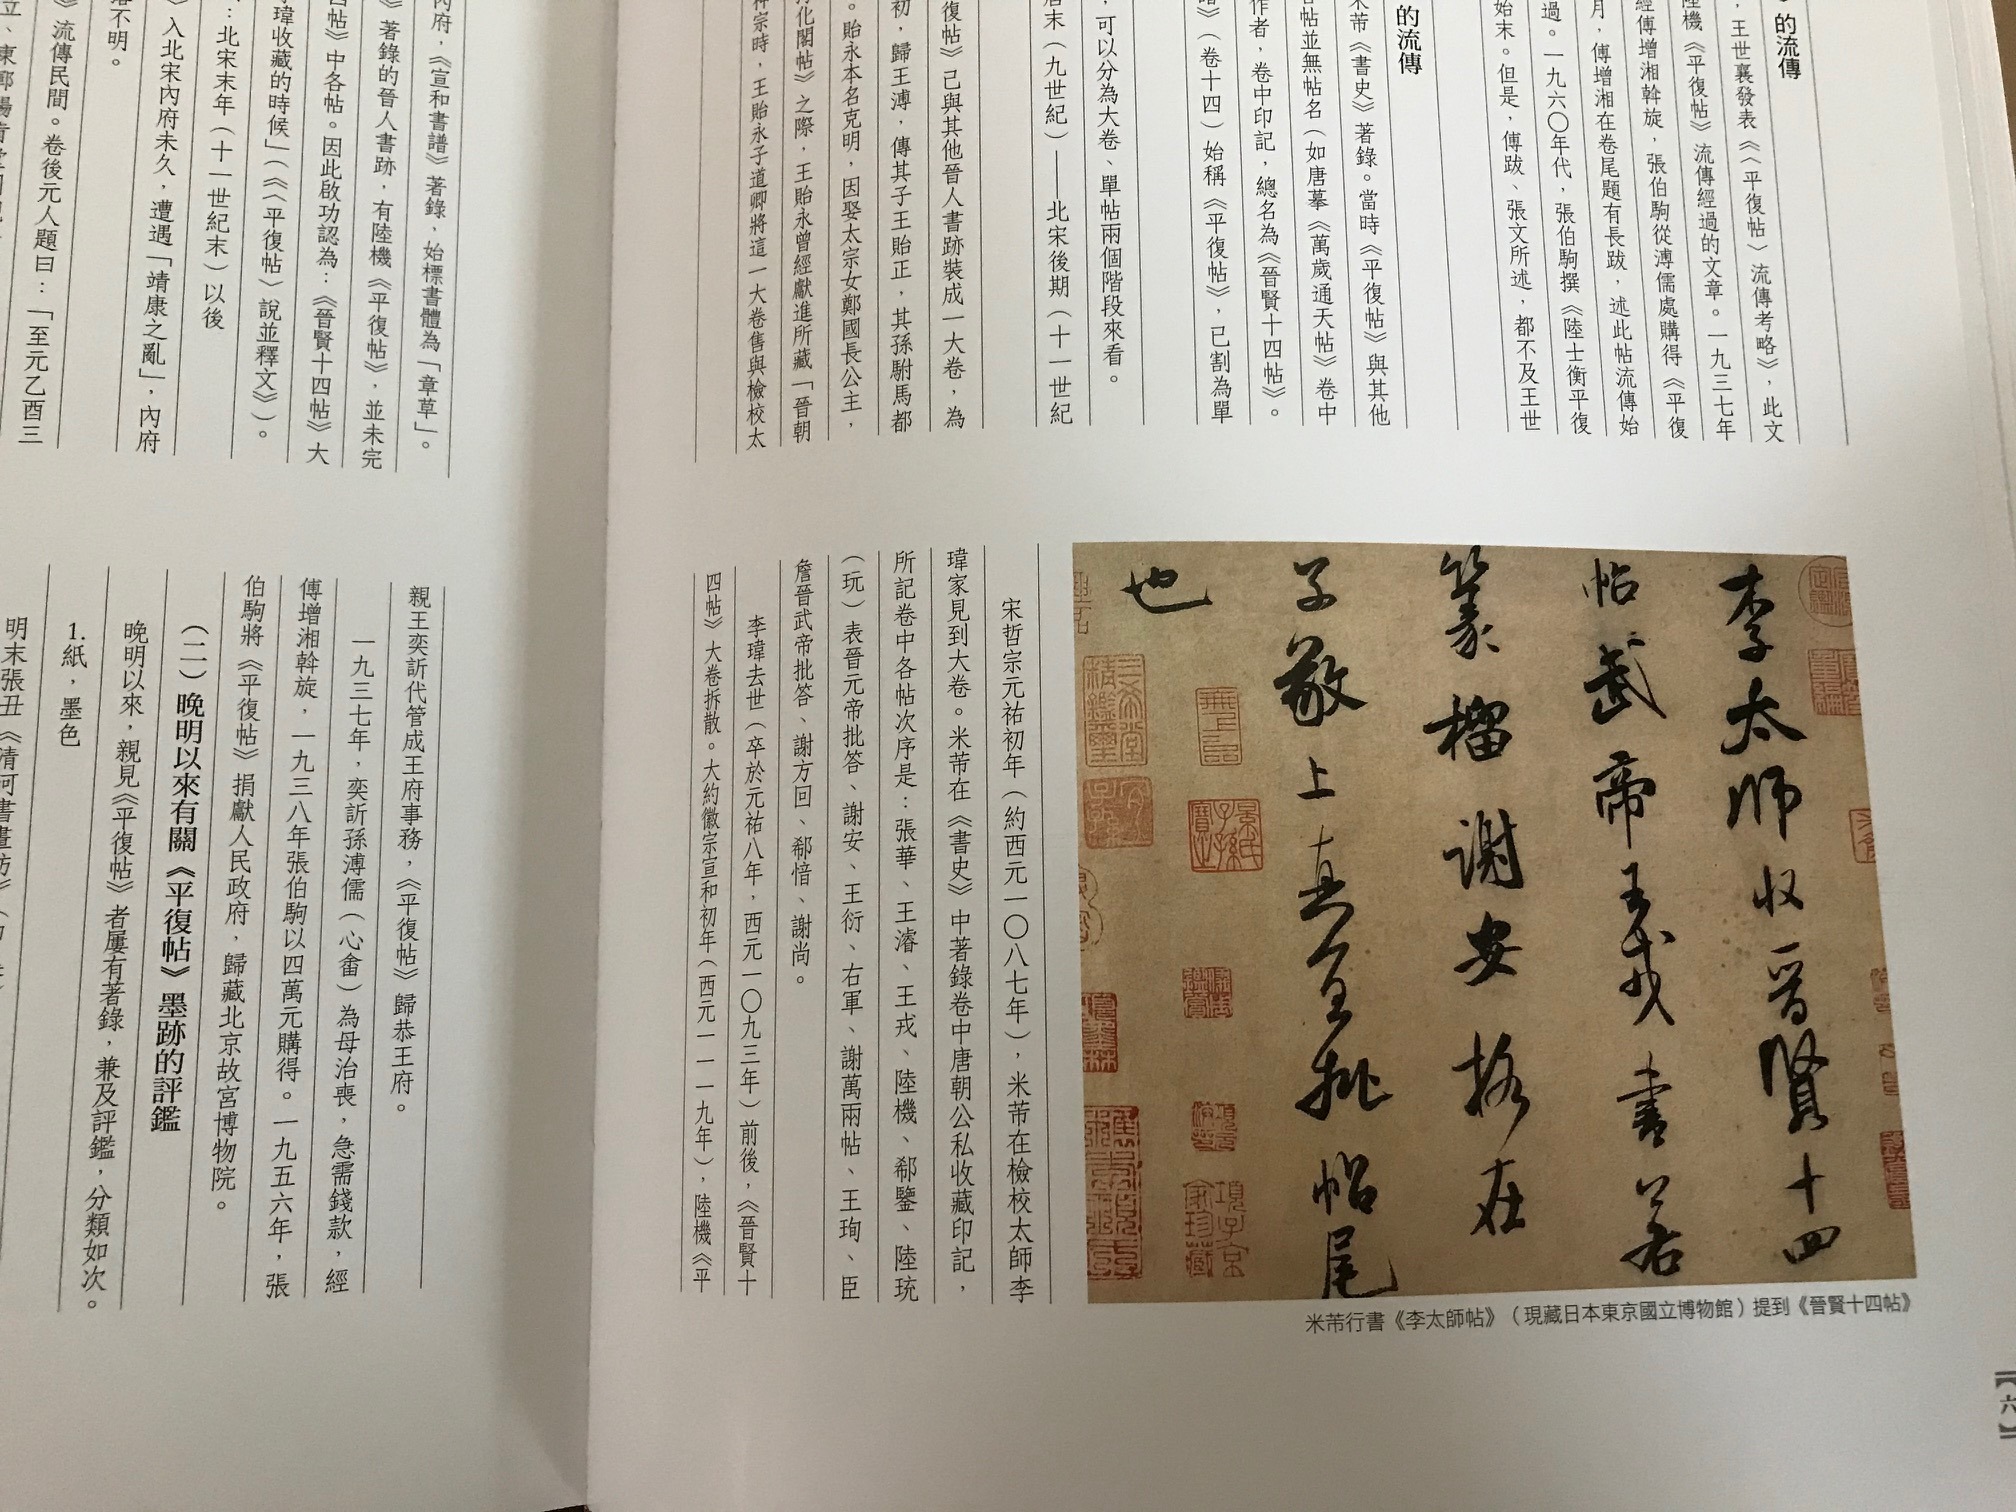 的流傳
，王世襄發表《〈平復帖〉流傳考略》，此文
陸機《平復帖》流傳經過的文章。一九三七年
經傅增湘斡旋，張伯駒從溥儒處購得《平復
月，傅增湘在卷尾題有長跋，述此帖流傳始
過。一九六〇年代，張伯駒撰《陸士衡平復
始末。但是，傅跋、張文所述，都不及王世
的流傳
米芾《書史》著錄。當時《平復帖》與其他
各帖並無帖名（如唐摹《萬歲通天帖》卷中
作者，卷中印記，總名為《晉賢十四帖》。
譜》（卷十四）始稱《平復帖》，已割為單
，可以分為大卷、單帖兩個階段來看。
唐末（九世紀）——北宋後期（十一世紀
復帖》已與其他晉人書跡裝成一大卷，為
初，歸王溥，傳其子王貽正，其孫駙馬都
。貽永本名克明，因娶太宗女鄭國長公主，
淳化閣帖》之際，王貽永曾經獻進所藏「晉朝
神宗時，王貽永子道卿將這一大卷售與檢校太
李太師收晉賢十四
帖武帝王戎書若
篆籀謝安格在
子敬上真宜批帖尾
也
米芾行書《李太師帖》（現藏日本東京國立博物館）提到《晉賢十四帖》
宋哲宗元祐初年（約西元一〇八七年），米芾在檢校太師李
瑋家見到大卷。米芾在《書史》中著錄卷中唐朝公私收藏印記，
所記卷中各帖次序是：張華、王濬、王戎、陸機、郗鑒、陸玩
（玩）表晉元帝批答、謝安、王衍、右軍、謝萬兩帖、王珣、臣
詹晉武帝批答、謝方回、郗愔、謝尚。
李瑋去世（卒於元祐八年，西元一〇九三年）前後，《晉賢十
四帖》大卷拆散。大約徽宗宣和初年（西元一一一九年），陸機《平
【六】
內府，《宣和書譜》著錄，始標書體為「章草」。
》著錄的晉人書跡，有陸機《平復帖》，並未完
四帖》中各帖。因此啟功認為：《晉賢十四帖》大
李瑋收藏的時候」（《〈平復帖〉說並釋文》）。
：北宋末年（十一世紀末）以後
》入北宋內府未久，遭遇「靖康之亂」，內府
落不明。
》流傳民間。卷後元人題曰：「至元乙酉三
親王奕訢代管成王府事務，《平復帖》歸恭王府。
一九三七年，奕訢孫溥儒（心畬）為母治喪，急需錢款，經
傅增湘斡旋，一九三八年張伯駒以四萬元購得。一九五六年，張
伯駒將《平復帖》捐獻人民政府，歸藏北京故宮博物院。
（二）晚明以來有關《平復帖》墨跡的評鑑
晚明以來，親見《平復帖》者屢有著錄，兼及評鑑，分類如次。
1.紙，墨色
明末張丑《清河書畫舫》